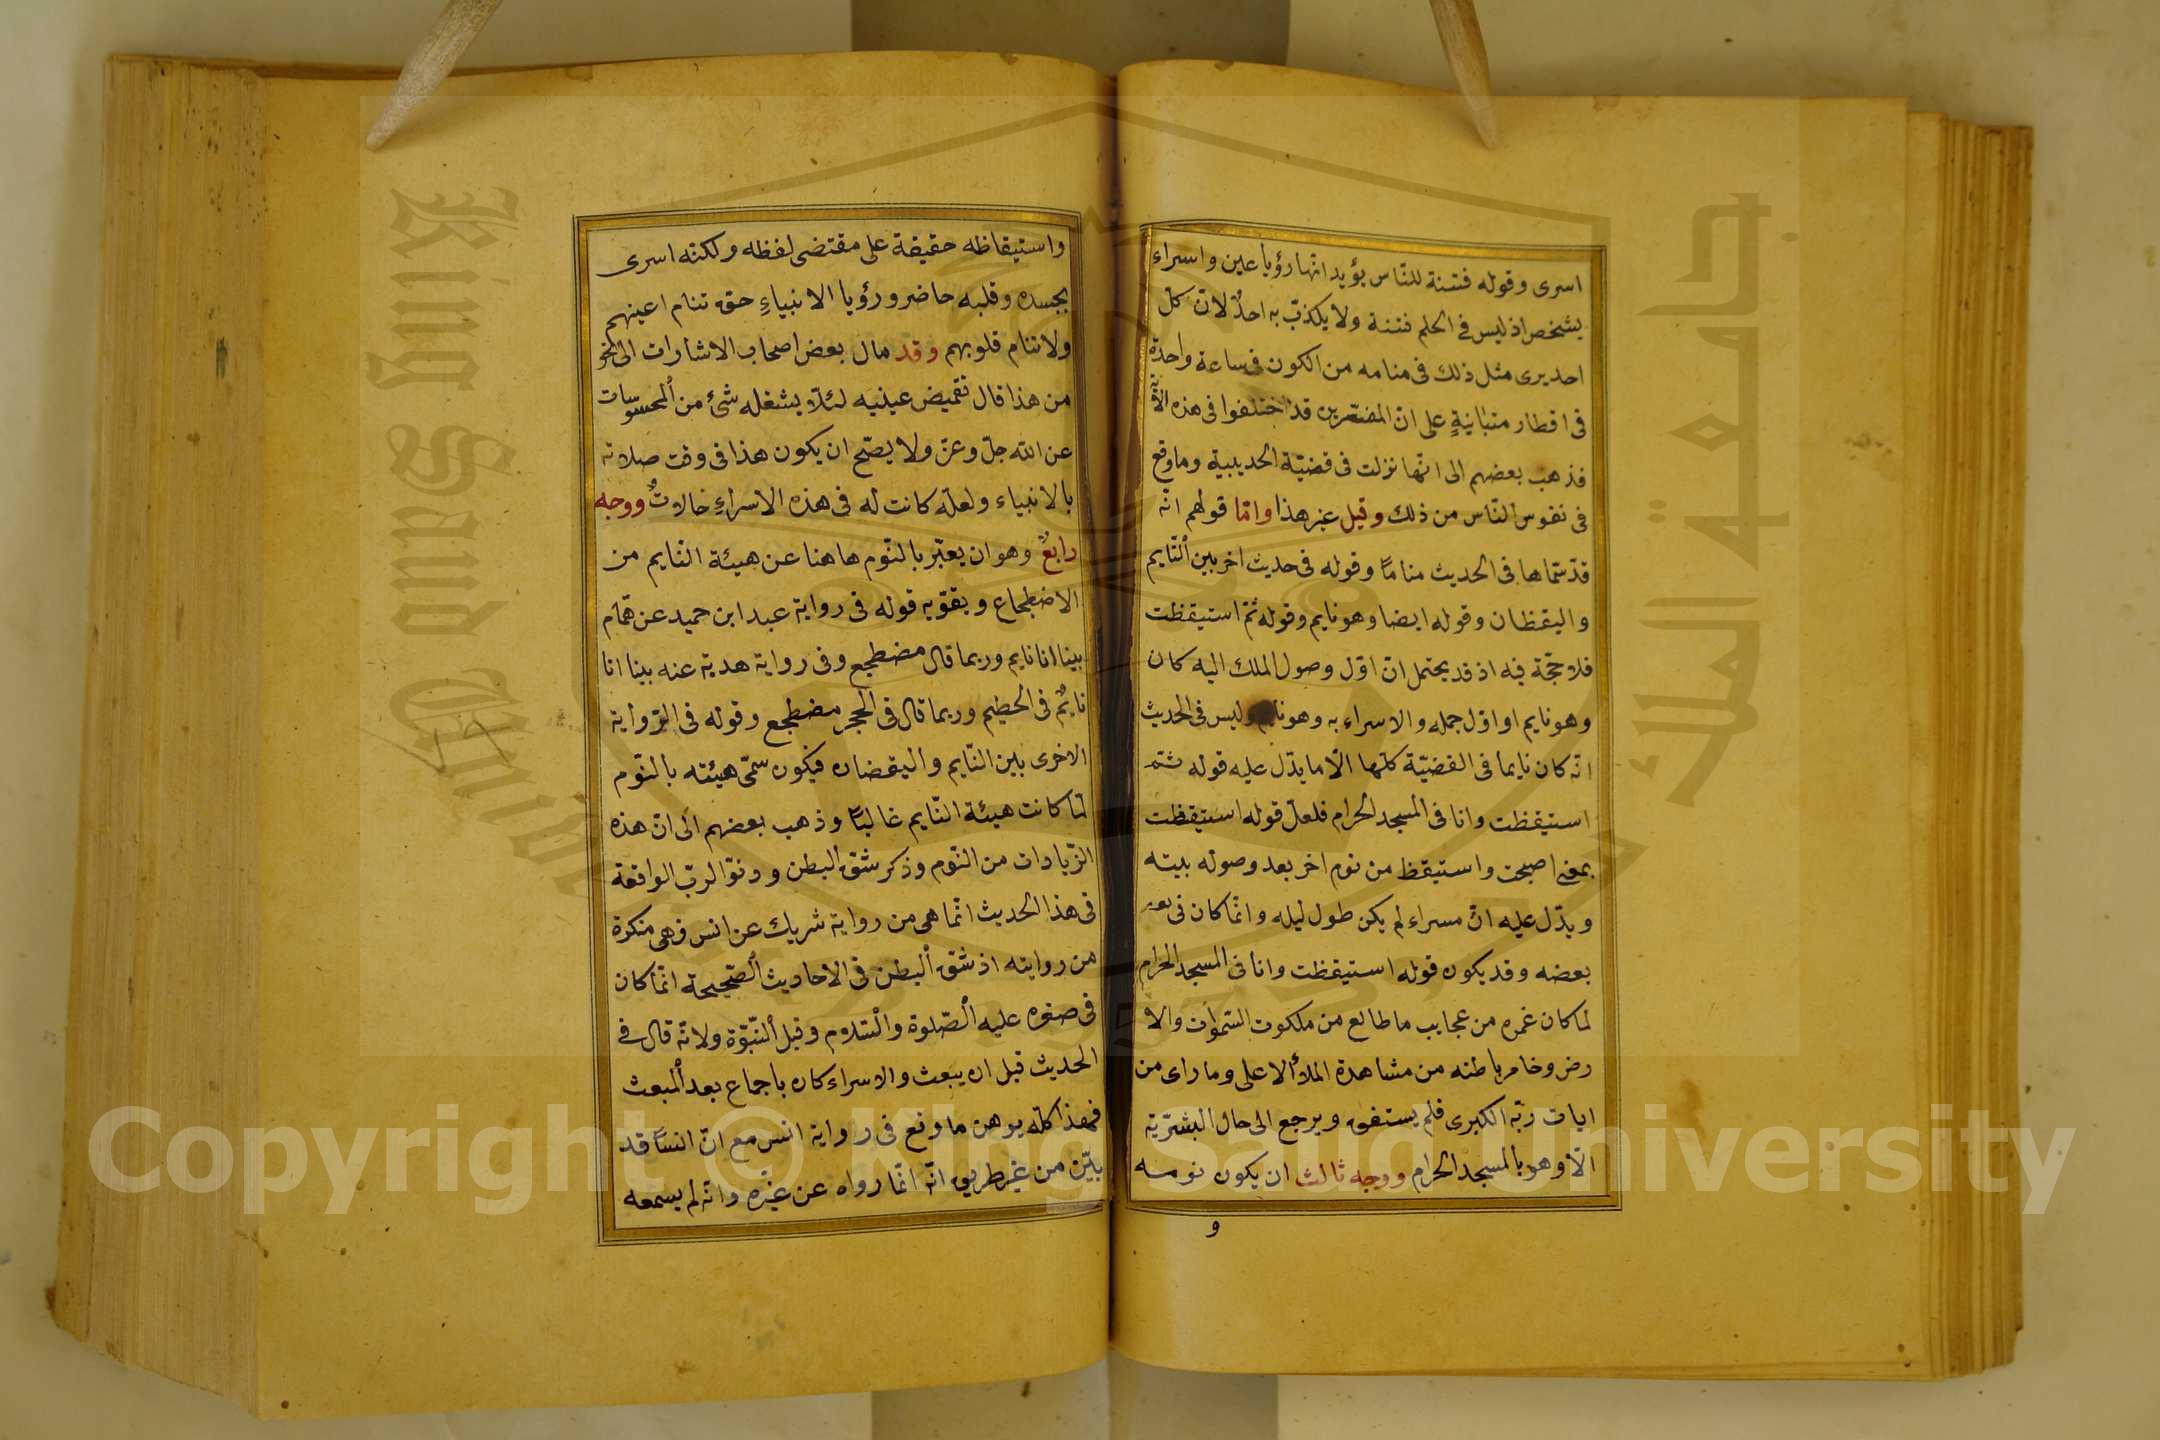 اسرى وقوله فتنة للنّاس يؤيد انّها رؤيا عين واسراء
بشخص اذ ليس فى الحلم فتنة ولا يكذّب به احدٌ لانّ كلّ
احد يرى مثل ذلك فى منامه من الكون فى ساعة واحدة
فى اقطار متباينةٍ على انّ المفسّرين قد اختلفوا فى هذه الآية
فذهب بعضهم الى انّها نزلت فى قضيّة الحديبية وما وقع
فى نفوس النّاس من ذلك وقيل غير هذا وامّا قولهم انّه
قد سمّاها فى الحديث مناماً وقوله فى حديث اخر بين النّايم
واليقظان وقوله ايضا وهو نايم وقوله ثمّ استيقظت
فلا حجّة فيه اذ قد يحتمل انّ اوّل وصول الملك اليه كان
وهو نايم او اوّل حمله والاسراء به وهو نايم وليس فى الحديث
انّه كان نايما فى القضيّة كلّها الّا ما يدّل عليه قوله ثم
استيقظت وانا فى المسجد الحرام فلعلّ قوله استيقظت
بمعنى اصبحت واستيقظ من نوم اخر بعد وصوله بيته
ويدّل عليه انّ مسراه لم يكن طول ليله وانّما كان فى
بعضه وقد يكون قوله استيقظت وانا فى المسجد الحرام
لما كان غمره من عجايب ما طالع من ملكوت السّموات والا
رض وخامر باطنه من مشاهدة الملأ الاعلى وما راى من
ايات ربّه الكبرى فلم يستفق ويرجع الى حال البشرّية
الّا وهو بالمسجد الحرام ووجه ثالث ان يكون نومه
و
واستيقاظه حقيقة على مقتضى لفظه ولكنّه اسرى
بجسده وقلبه حاضر ورؤيا الانبياءِ حق تنام اعينهم
ولا تنام قلوبهم وقد مال بعض اصحاب الاشارات الى نحو
من هذا قال تغميض عينيه لئلّا يشغله شئ من المحسوسات
عن الله جلّ وعزّ ولا يصّح ان يكون هذا فى وقت صلاته
بالانبياء ولعلّه كانت له فى هذه الاسراءِ حالاتٌ ووجه
رابعٌ وهو ان يعبّر بالنّوم هاهنا عن هيئة النّايم من
الاضطجاع ويقوّيه قوله فى رواية عبد ابن حميد عن همّام
بينا انا نايم وربما قال مضطجع وفى رواية هدبة عنه بينا انا
نايمٌ فى الحطيم وربما قال فى الحجر مضطجع وقوله فى الرّواية
الاخرى بين النّايم واليقضان فيكون سمّى هيئته بالنّوم
لمّا كانت هيئة النّايم غالباً وذهب بعضهم الى انّ هذه
الزّيادات من النّوم وذكر شقّ البطن ودنوّ الربّ الواقعة
فى هذا الحديث انّما هى من رواية شريك عن انس فهى منكرة
من روايته اذ شقّ البطن فى الاحاديث الصّحيحة انّما كان
فى صغره عليه الصّلوة والسّلام وقبل النّبوّة ولانّه قال فى
الحديث قبل ان يبعث والاسراء كان باجماع بعد المبعث
فهذا كلّه يوهن ما وقع فى رواية انس مع انّ انساً قد
بيّن من غير طريق انّه انّما رواه عن غيره وانّه لم يسمعه
King Saud
جامعة الملك
Copyright © King Saud University